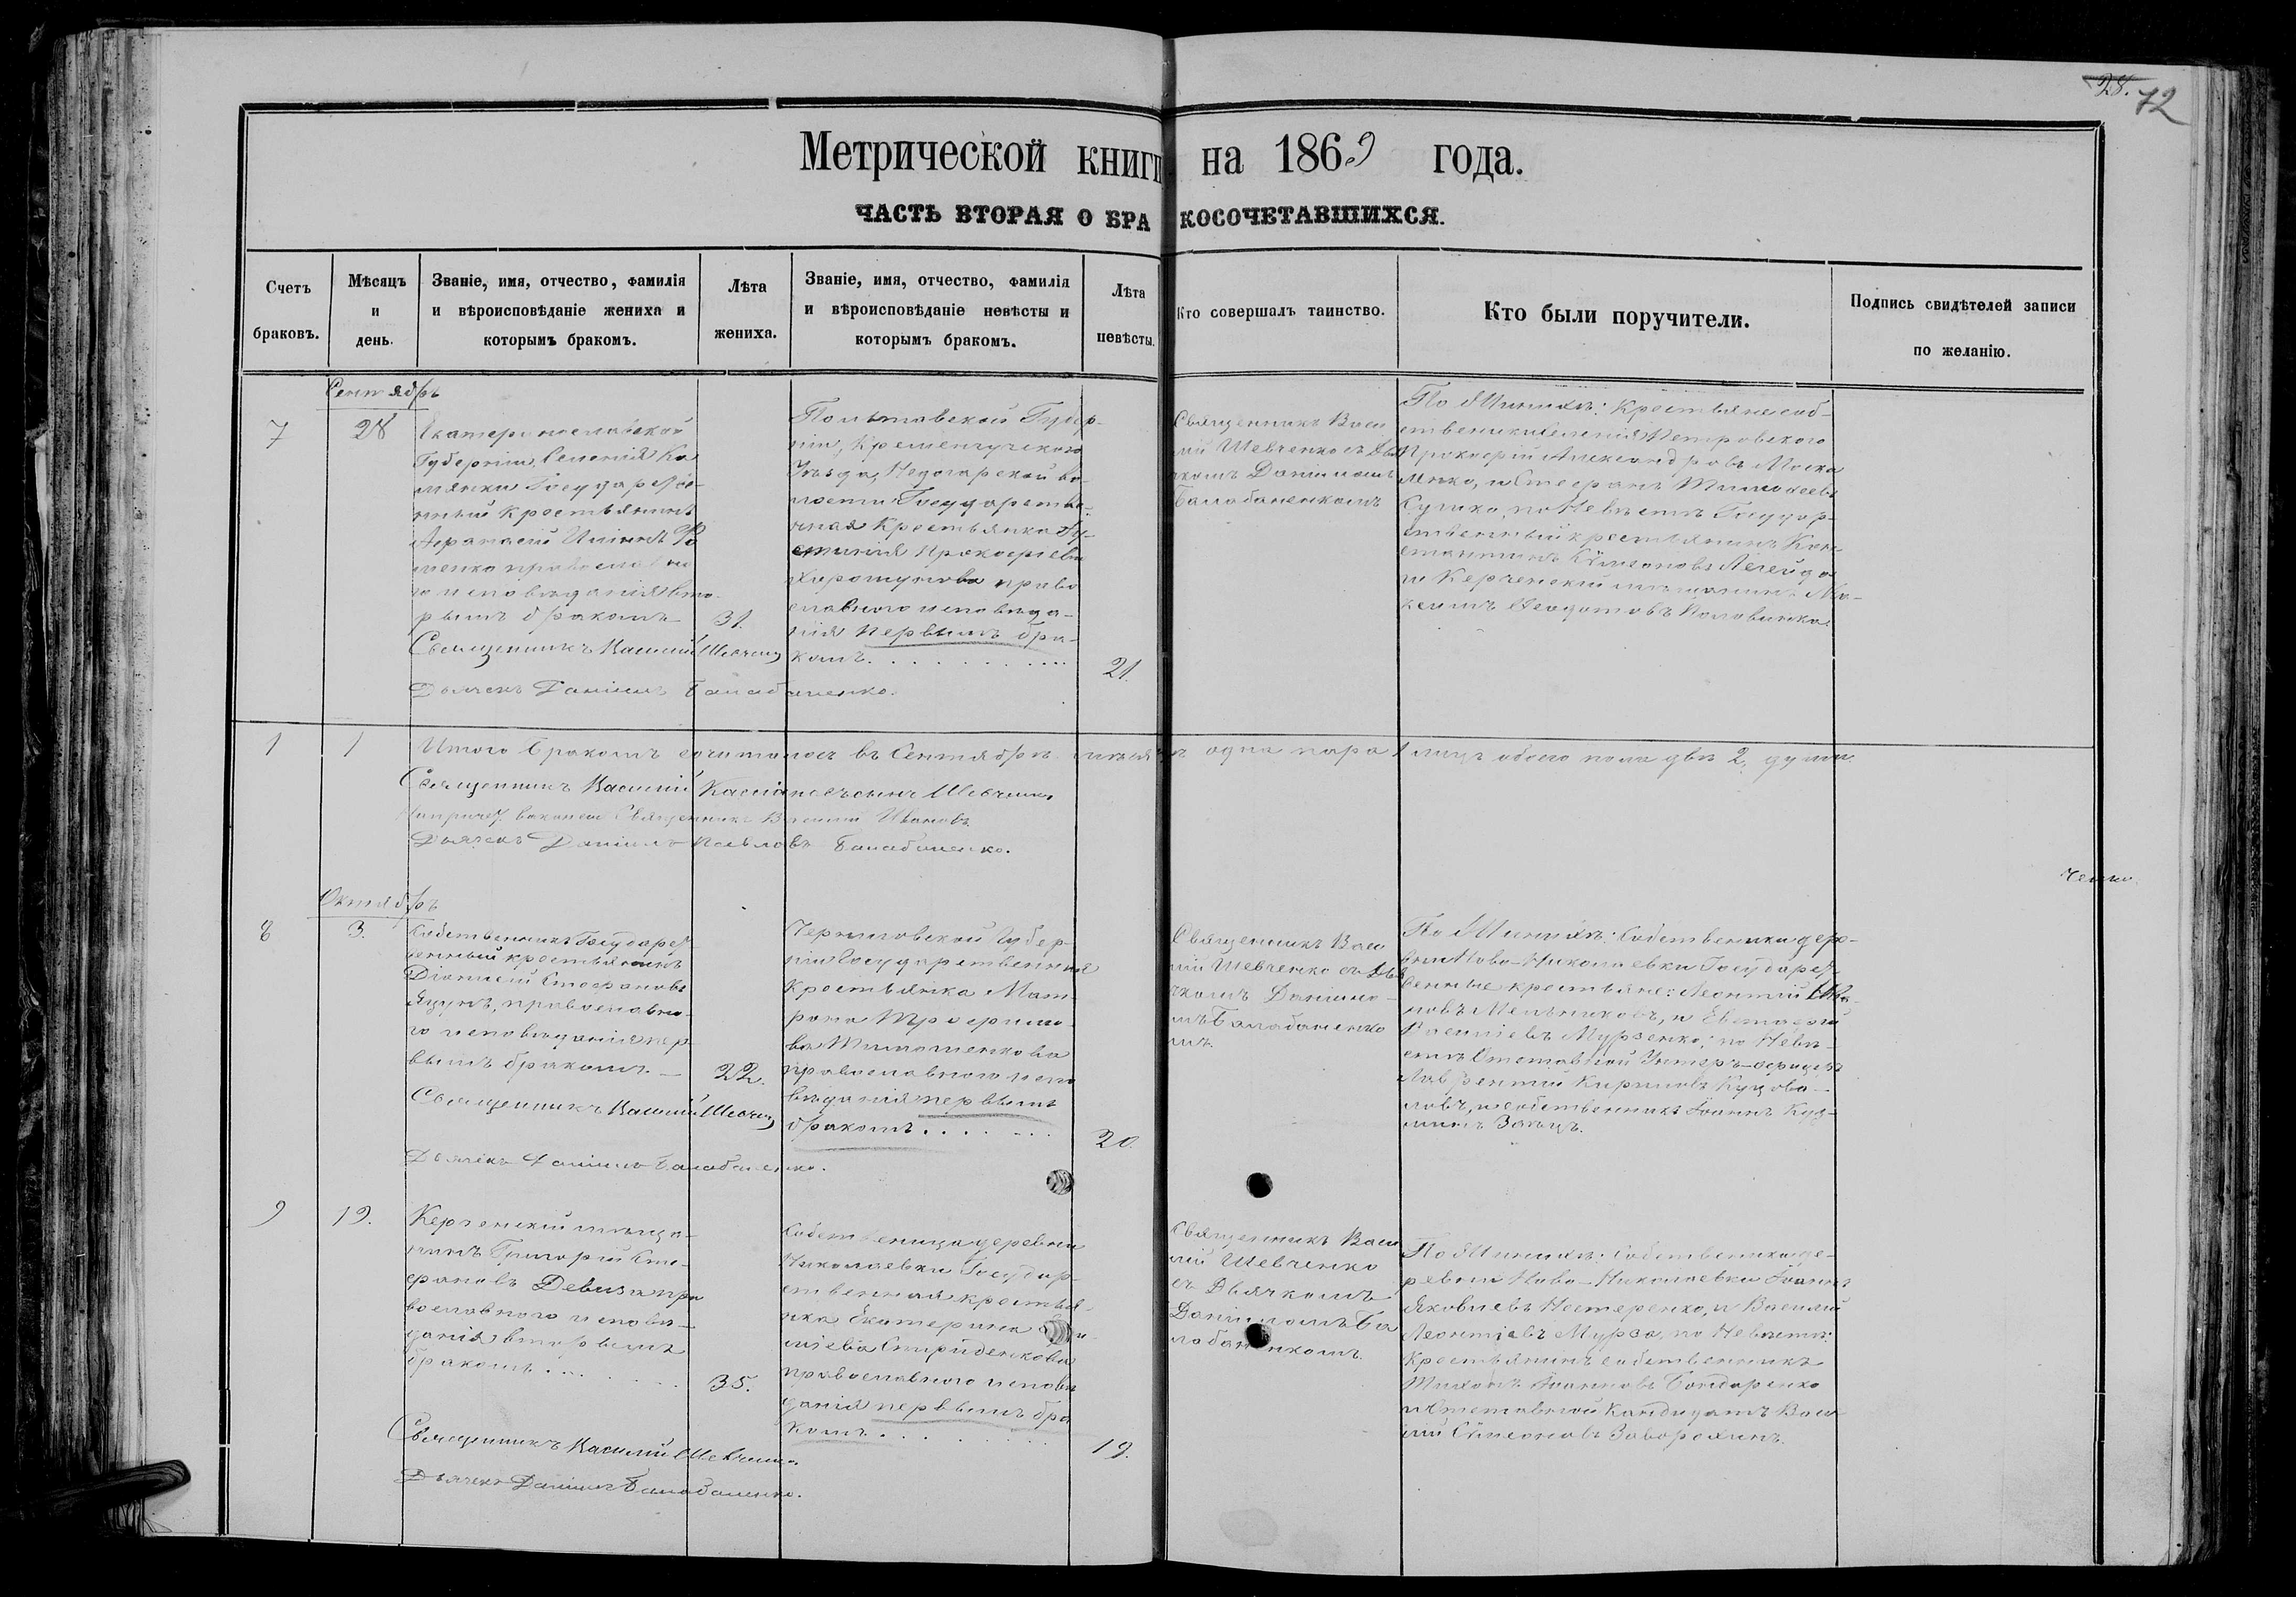 28. 72
Метрической книги на 1869 года.
ЧАСТЬ ВТОРАЯ О БРАКОСОЧЕТАВШИХСЯ.
Счетъ браковъ.
Мѣсяцъ и день.
Званіе, имя, отчество, фамилія и вѣроисповѣданіе жениха и которымъ бракомъ.
Лѣта жениха.
Званіе, имя, отчество, фамилія и вѣроисповѣданіе невѣсты и которымъ бракомъ.
Лѣта невѣсты.
Кто совершалъ таинство.
Кто были поручители.
Подпись свидѣтелей записи по желанію.
Сентябрь
7
28
Екатеринославской
Губерніи, Селенія Ка
мянки Государст-
нный крестьянинъ
Афанасій Иліинъ Фо
менко православна
го исповѣданія вто-
рымъ бракомъ
31.
Священникъ Василій Шевченко
Дьячекъ Даніилъ Балабаненко.
Полтавской Губер-
ніи, Кременчугского
Уѣзда, Недогарской во-
лости Государствен-
ная крестьянка Іу-
стинія Прокофіева
право
славного исповѣда-
нія первымъ бра-
комъ.
21.
Священникъ Васи
лій Шевченко съ Дья
чкомъ Даніиломъ
Балабаненкомъ
По Женихѣ: крестьяне соб-
ственники селенія Петровского
Прокофій Александровъ Моска
ленко, и Стефанъ Тимофеевъ
по Невѣстѣ Государ-
ственный крестьянинъ Кон-
стантинъ Сѵмеоновъ Легейда
и Керченскій мѣщанинъ Ма-
ксимъ Ѳеодотовъ Половинка
1
1
Итого бракомъ сочиталось въ Сентябрѣ мѣсяцѣ одна пара 1 лицъ обоего пола двѣ 2, души.
Священникъ Василій Касіановъ сынъ Шевченко
Священникъ Василій Ивановъ
Дьячекъ Даніилъ Павловъ Балабаненко.
ченко.
Октябрь
8
3.
Собственникъ Государст
венный крестьянинъ
Діонисій Стефановъ
Яцунъ, православна-
го исповѣданія пер-
вымъ бракомъ. —
22.
Священникъ Василій Шевченко
Дьячекъ Даніилъ Балабаненко.
Черниговской Губер-
ніи Государственная
крестьянка Мат-
рона Трофимо-
ва Тимошенкова
православного испо
вѣданія первымъ
бракомъ.
20.
Священникъ Васи
лій Шевченко съ Дья
чкомъ Даніило-
мъ Балабаненко
мъ.
По Женихѣ: Собственники дере-
вни Ново-Николаевки Государст-
венные крестьяне: Леонтій Ива-
новъ Мельниковъ, и Евстафій
Мурзенко; по Невѣ-
стѣ Отставной Унтеръ-офицеръ
Лаврентій Кириловъ Куцова-
ловъ, и собственникъ Іоаннъ Куз-
минъ Заяцъ.
9
19.
Керченскій мѣща-
нинъ Григорій Сте-
фановъ Девиза пра
вославного исповѣ-
данія вторымъ
бракомъ.
35.
Священникъ Василій Шевченко.
Дьячекъ Даніилъ Балабаненко.
Собственница деревни
Николаевки Государ-
ственная крестья-
нка Екатерина
Спириденкова
православного исповѣ
данія первымъ бра
комъ.
19.
Священникъ Васи
лій Шевченко
съ Дьячкомъ
Даніиломъ Ба
лабаненкомъ.
По Женихѣ: Собственники де-
ревни Ново-Николаевки Іоаннъ
Яковлевъ Нестеренко, и Василій
Леонтіевъ Мурза, по Невѣстѣ:
Крестьянинъ собственникъ
Тихонъ Іоанновъ Бондаренко
и Отставной Кандидатъ Васи
лій Сѵмеоновъ